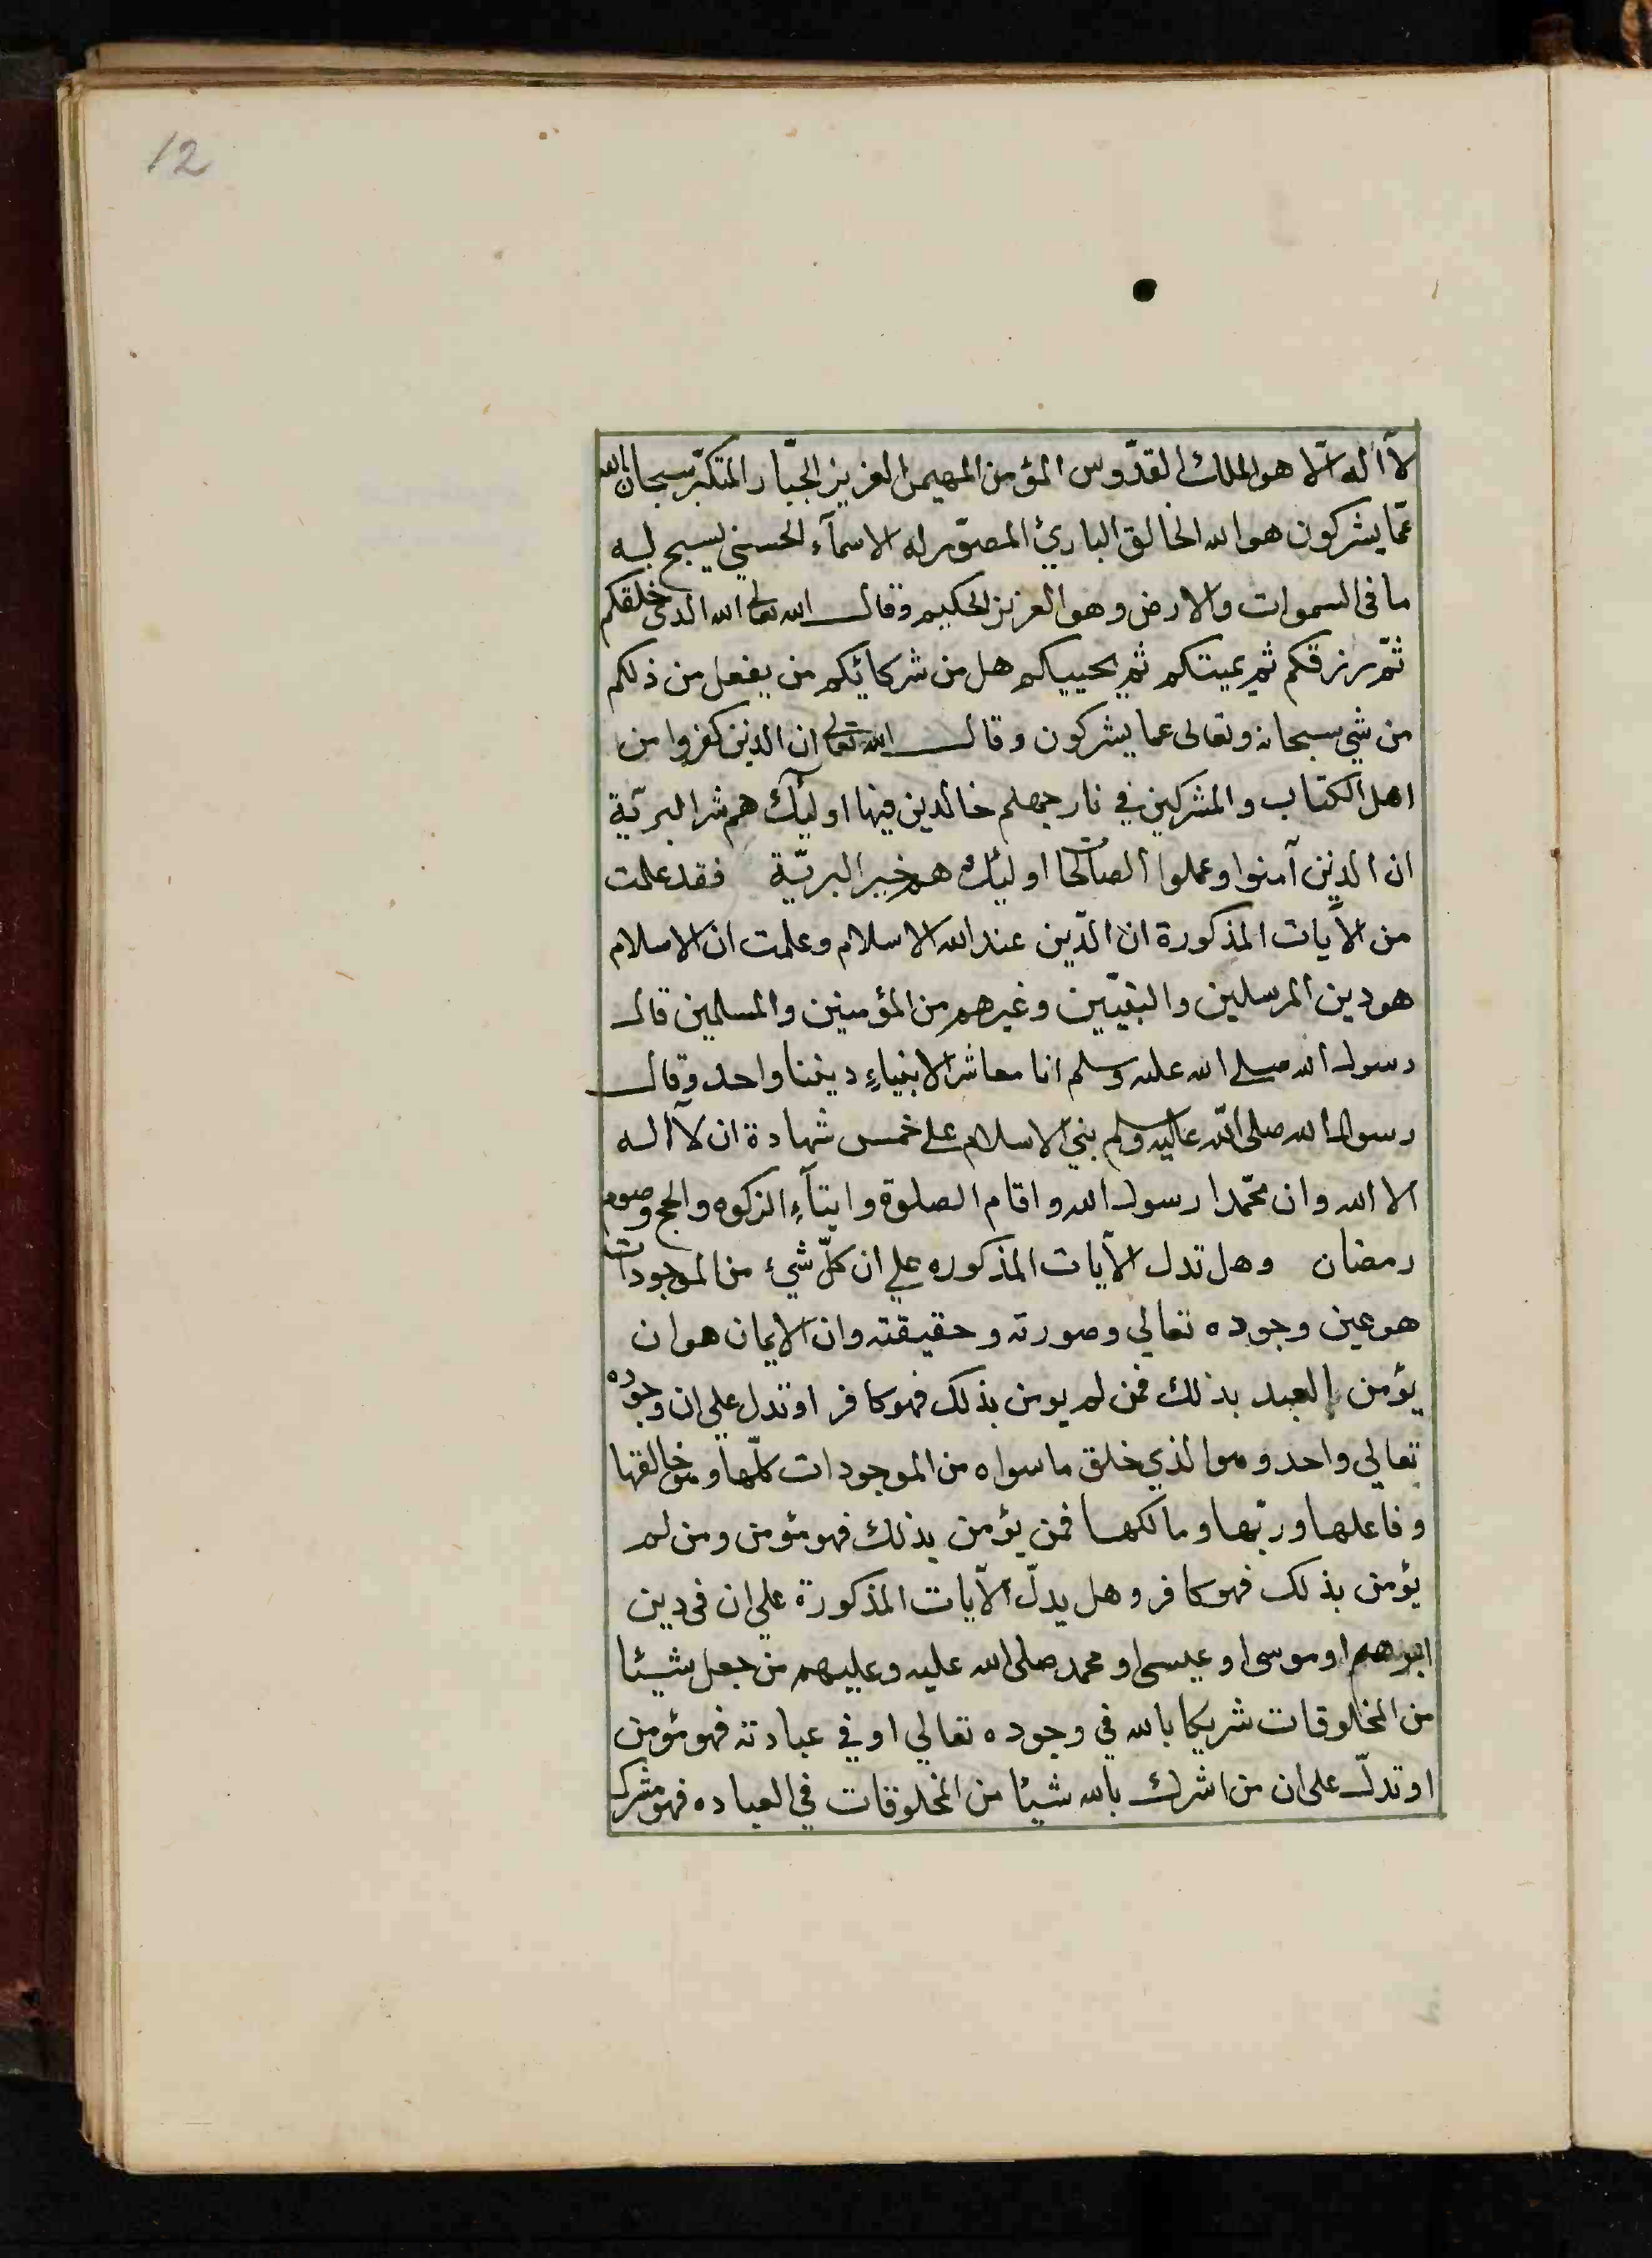 12
لا اله الّا هو الملك القدّوس المؤمن المهيمن العزيز الجبّار المتكبّر سبحان الله
عمّا يشركون هو الله الخالق الباريُ المصوّر له الاسمآء الحسني يسبح له
ما فى السموات والارض وهو العزيز الحكيم وقال الله تعالى الله الذى خلقكم
ثمّ رزقكم ثم يميتكم ثم يحييكم هل من شركائكم من يفعل من ذلكم
من شي سبحانه وتعالى عما يشركون وقال الله تعالى ان الذين كفروا من
اهل الكتاب والمشركين في نار جهنم خالدين فيها اوليٰك هم شر البريّة
ان الذين آمنوا وعملوا الصالحات اوليٰك هم خير البريّة فقد علمت
من الآيات المذكورة ان الدّين عند الله الاسلام وعلمت ان الاسلام
هو دين المرسلين والنبيّين وغيرهم من المؤمنين والمسلمين قال
رسول الله صلي الله عليه وسلم انا معاشر الانبياءِ ديننا واحد وقال
رسول الله صلى الله عاليه وسلم بني الاسلام على خمس شهادة ان لا اله
الا الله وان محمّدا رسول الله واقام الصلوة وايتآءِ الزكوه والحج وصوم
رمضان وهل تدل الآيات المذكوره علي ان كلّ شيء من الموجودات
هو عين وجوده تعالي وصورته وحقيقته وان الايمان هو ان
يؤمن العبد بذلك فمن لم يومن بذلك فهو كافر او تدل علي ان وجوده
تعالي واحد وهو الذي خلق ما سواه من الموجودات كلّها وهو خالقها
وفاعلها وربّها ومالكها فمن يؤمن بذلك فهو مؤمن ومن لم
يؤمن بذلك فهو كافر وهل يدلّ الآيات المذكورة علي ان فى دين
ابرهم او موسى او عيسى او محمد صلى الله عليه وعليهم من جعل شيئا
من المخلوقات شريكا بالله في وجوده تعالي او في عبادته فهو مؤمن
او تدلّ على ان من اشرك بالله شيئا من المخلوقات في العباده فهو مشرك